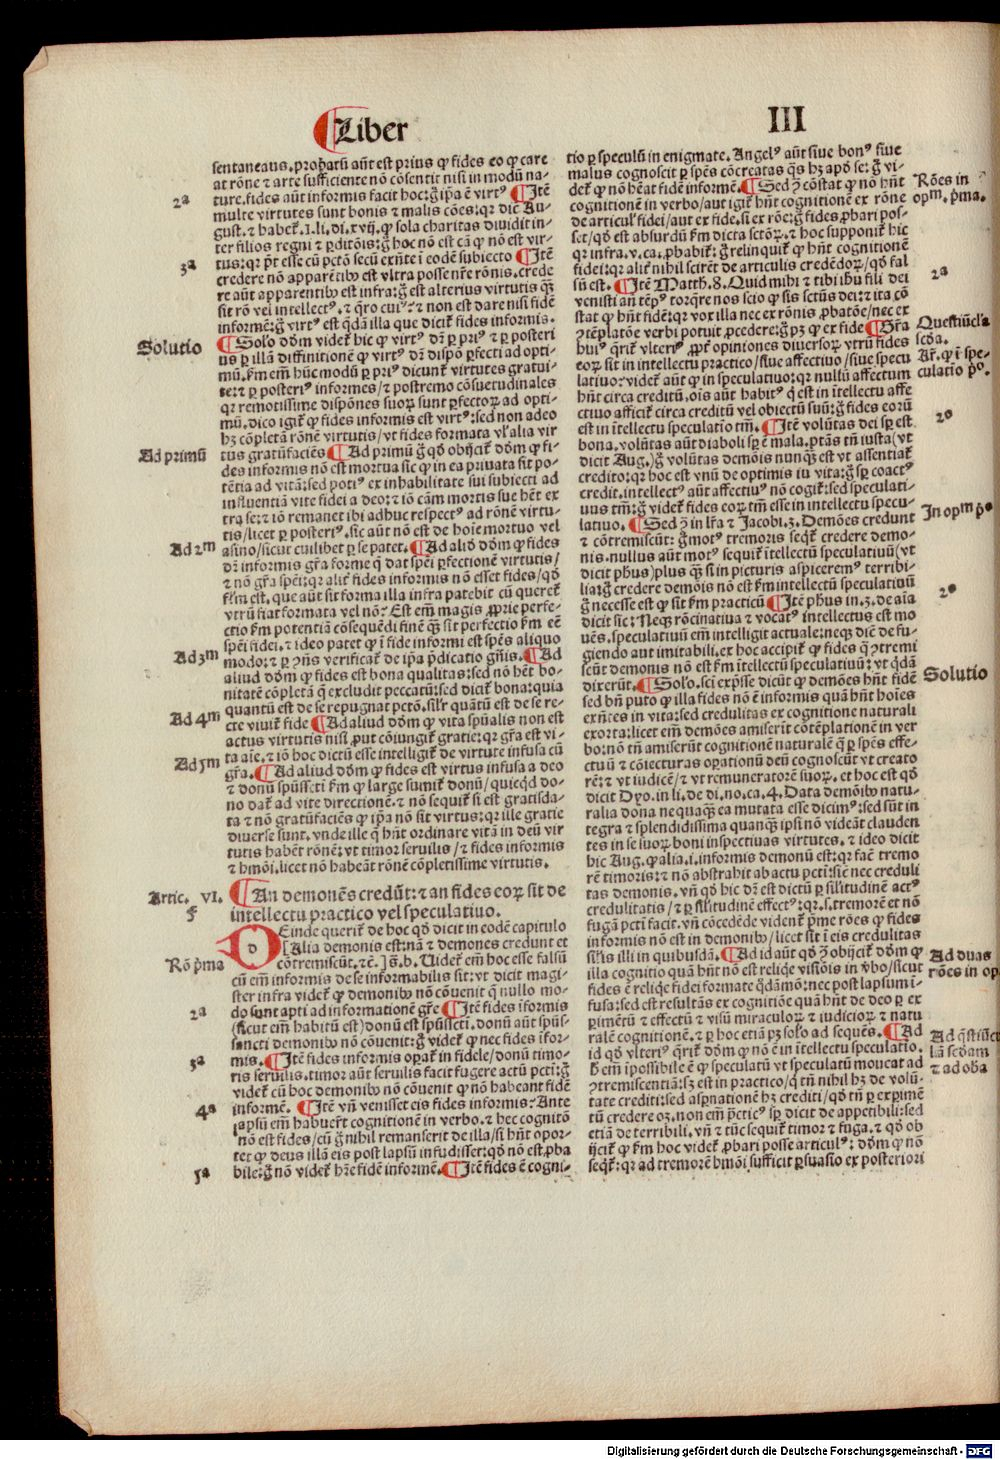 ¶Liber
III
sentaneaus. probatū aūt est prius ꝙ fides eo ꝙ care
at rōne ⁊ arte sufficiente nō cōsentit nisi in modū na-
2ᵃ
ture. fides aūt informis facit hoc: g̃ ip̄a ē virtꝰ ¶Itē
multe virtutes sunt bonis ⁊ malis cōes: qr dic̄ Au-
gust. ⁊ habet᷑. 1. li. di. xvij. ꝙ sola charitas diuidit in-
ter filios regni ⁊ ꝑditōnis: g̃ hoc nō est cā ꝙ nō est vir-
3ᵃ
tus: qr p̄t esse cū pctō secū exn̄te ī eodē subiecto ¶Itē
credere nō apparentibꝰ est vltra posse nr̄e rōnis. crede
re aūt apparentibꝰ est infra: g̃ est alterius virtutis q̄ȝ
sit rō vel intellectꝰ. ⁊ q̄ro cuiꝰ: ⁊ non est dare nisi fidē
informē: g̃ virtꝰ est q̄dā illa que dicit᷑ fides informis.
Solutio
¶Solo dōm videt᷑ hic ꝙ virtꝰ dr̄ ꝑ priꝰ ⁊ ꝑ posteri
us ꝑ illā diffinitionē ꝙ virtꝰ dr̄ dispō ꝑfecti ad opti-
mū. km̄ em̄ hūc modū ꝑ priꝰ dicunt᷑ virtutes gratui-
te: ⁊ ꝑ posteriꝰ informes / ⁊ postremo cōsuetudinales
qr remotissime dispōnes suoꝝ sunt ꝑfectoꝝ ad opti-
mū. dico igit᷑ ꝙ fides informis est virtꝰ: sed non adeo
hȝ cōpletā rōnē virtutis / vt fides formata vl̓ alia vir
Ad primū
tus gratūfaciēs ¶Ad primū g̃ qd̓ obijcit᷑ dōm ꝙ fi-
des informis nō est mortua sic ꝙ in ea priuata sit po-
tētia ad vitā: sed potiꝰ ex inhabilitate sui subiecti ad
influentiā vite fidei a deo: ⁊ iō cām mortis sue hēt ex
tra se: ⁊ iō remanet ibi adhuc respectꝰ ad rōnē virtu-
tis / licet ꝑ posteriꝰ. sic aūt nō est de hoīe mortuo vel
Ad 2ᵐ
asino / sicut cuilibet ꝑ se patet. ¶Ad aliō dōm ꝙ fides
dr̄ informis gr̄a forme q̄ dat spēi ꝑfectionē virtutis /
⁊ nō gr̄a spēi: qr alit᷑ fides informis nō esset fides / qd̓
fl̓m est. que aūt sit forma illa infra patebit cū queret᷑
vtrū fiat formata vel nō: Est em̄ magis ꝓprie perfe-
ctio km̄ potentiā cōsequēdi finē q̄ȝ sit perfectio km̄ eē
spēi fidei. ⁊ ideo patet ꝙ ī fide informi est spēs aliquo
Ad 3ᵐ
modo: ⁊ ꝑ ꝯn̄s verificat᷑ de ip̄a p̄dicatio gn̄is. ¶Ad
aliud dōm ꝙ fides est bona qualitas: sed nō hēt bo-
nitatē cōpletā q̄ excludit peccatū: sed dicit᷑ bona: quia
quantū est de se repugnat pctō. silr̄ quātū est de se re-
Ad 4ᵐ
cte viuit᷑ fide ¶Ad aliud dōm ꝙ vita spūalis non est
actus virtutis nisi ꝓut cōiungit᷑ gratie: qr gr̄a est vi-
Ad 5ᵐ
ta aīe. ⁊ iō hoc dictū esse intelligit᷑ de virtute infusa cū
gr̄a. ¶Ad aliud dōm ꝙ fides est virtus infusa a deo
⁊ donū spūssc̄ti km̄ ꝙ large sumit᷑ donū / quicqd̓ do-
no dat᷑ ad vite directionē. ⁊ nō sequit᷑ si est gratisda-
ta ⁊ nō gratūfaciēs ꝙ ip̄a nō sit virtus: qr ille gratie
diuerse sunt. vnde ille q̄ hn̄t ordinare vitā in deū vir
tutis habēt rōnē: vt timor seruilis / ⁊ fides informis
⁊ hmōi. licet nō habeāt rōnē cōpletissime virtutis.
Artic. VI.
¶An demonēs credūt: ⁊ an fides eoꝝ sit de
intellectu practico vel speculatiuo.
Deinde querit᷑ de hoc qd̓ dicit in eodē capitulo
[Alia demonis est: nā ⁊ demones credunt et
Rō p̄ma
cōtremiscūt. ⁊c̄. ]g̃. b. Uidet᷑ em̄ hoc esse falsū
cū em̄ informis de se informabilis sit: vt dicit magi-
ster infra videt᷑ ꝙ demonibꝰ nō cōuenit q̄ nullo mo-
2ᵃ
do sunt apti ad informationē gr̄e ¶Itē fides īformis
(sicut em̄ habitū est) donū est spūssc̄ti. donū aūt spūs-
sancti demonibꝰ nō cōuenit: g̃ videt᷑ ꝙ nec fides īfor-
3ᵃ
mis. ¶Itē fides informis oꝑat᷑ in fidele / donū timo-
ris seruilis. timor aūt seruilis facit fugere actū pcti: g̃
videt᷑ cū hoc demonibꝰ nō cōuenit ꝙ nō habeant fidē
4ᵃ
informē. ¶Itē vn̄ venisset eis fides informis: Ante
lapsū em̄ habuer̄t cognitionē in verbo. ⁊ hec cognitō
nō est fides / cū g̃ nihil remanserit de illa / si hn̄t opor-
tet ꝙ deus illā eis post lapsū infudisset: qd̓ nō est ꝓba
5ᵃ
bile: g̃ nō videt᷑ hr̄e fidē informē. ¶Itē fides ē cogni-
tio ꝑ speculū in enigmate. Angelꝰ aūt siue bonꝰ siue
malus cognoscit ꝑ spēs cōcreatas q̄s hȝ apd̓ se: g̃ vi-
det᷑ ꝙ nō hēat fidē informē. ¶Sed ꝯ̄ cōstat ꝙ nō hn̄t
Rōes in
opᵐ. p̄ma.
cognitionē in verbo / aut igit᷑ hn̄t cognitionē ex rōne
de articulꝰ fidei / aut ex fide. si ex rōe: g̃ fides ꝓbari pos-
set / qd̓ est absurdū km̄ dicta sctōꝝ. ⁊ hoc supponit᷑ hic
qr infra. v. ca. ꝓbabit᷑: g̃ relinquit᷑ ꝙ hn̄t cognitionē
fidei: qr alit᷑ nihil scirēt de articulis credēdoꝝ / qd̓ fal
2ᵃ
sū est. ¶Itē Matth. 8. Quid mihi ⁊ tibi ihu fili dei
venisti an̄ tēpꝰ torq̄re nos scio ꝙ sis sctūs dei: ⁊ ita cō
stat ꝙ hn̄t fidē: qr vox illa nec ex rōnis ꝓbatōe / nec ex
ꝯtēplatōe verbi potuit ꝓcedere: g̃ pȝ ꝙ ex fide ¶Gr̄a
Questiūcl̓a
scd̓a.
huiꝰ q̄rit᷑ vlteriꝰ ꝓpt̄ opiniones diuersoꝝ vtrū fides
eoꝝ sit in intellectu practico / siue affectiuo / siue specu
Ar. ꝙ ī spe-
culatio pº.
latiuo: videt᷑ aūt ꝙ in speculatiuo: qr nullū affectum
hn̄t circa creditū. oīs aūt habitꝰ q̄ est in ītellectu affe
ctiuo afficit᷑ circa creditū vel obiectū suū: g̃ fides eorū
2º
est in ītellectu speculatio tm̄. ¶Itē volūtas dei sꝑ est
bona. volūtas aūt diaboli sꝑ ē mala. ptās tn̄ iusta (vt
dicit Aug.) g̃ volūtas demōis nunq̄ȝ est vt assentiat᷑
credito: qr hoc est vnū de optimis iu vita: g̃ sꝑ coactꝰ
credit. intellectꝰ aūt affectiuꝰ nō cogit᷑: sed speculati-
uus tm̄: g̃ videt᷑ fides eoꝝ tm̄ esse in intellectu specu-
In opᵐ pº
latiuo. ¶Sed ꝯ̄ in lr̄a ⁊ Jacobi. 3. Demōes credunt
⁊ cōtremiscūt: g̃ motꝰ tremoris seqt᷑ credere demo-
nis. nullus aūt motꝰ sequit᷑ ītellectū speculatiuū (vt
dicit phus) plus q̄ȝ si in picturis aspiceremꝰ terribi-
lia: g̃ credere demōis nō est km̄ intellectū speculatiuū
2º
g̃ necesse est ꝙ sit km̄ practicū ¶Itē phus in. 3. de aīa
dicit sic: Neqȝ rōcinatiua ⁊ vocatꝰ intellectus est mo
uēs. speculatiuū em̄ intelligit actuale: neqȝ dicē de fu-
giendo aut imitabili. ex hoc accipit᷑ ꝙ fides q̄ ꝯtremi
scūt demonis nō est km̄ ītellectū speculatiuū: vt qdā
Solutio
dixerūt. ¶Solo. sci exp̄sse dicūt ꝙ demōes hn̄t fidē
sed bn̄ puto ꝙ illa fides nō ē informis quā hn̄t hoīes
exn̄tes in vita: sed credulitas ex cognitione naturali
exorta: licet em̄ demōes amiserīt cōtēplationē in ver
bo: nō tn̄ amiserūt cognitionē naturalē q̄ ꝑ spēs effe-
ctuū ⁊ cōiecturas oꝑationū deū cognoscūt vt creato
rē: ⁊ vt iudicē / ⁊ vt remuneratorē suoꝝ. et hoc est qd̓
dicit Dyo. in li. de di. no. ca. 4. Data demōibꝰ natu-
ralia dona nequaq̄ȝ ea mutata esse dicimꝰ: sed sūt in
tegra ⁊ splendidissima quanq̄ȝ ipsi nō videāt clauden
tes in se suoꝝ boni inspectiuas virtutes. ⁊ ideo dicit
hic Aug. ꝙ alia. i. informis demonū est: qr faē tremo
rē timoris: ⁊ nō abstrahit ab actu pcti: sic nec creduli
tas demonis. vn̄ qd̓ hic dr̄ est dictū ꝑ sil̓itudinē actꝰ
credulitatis / ⁊ ꝑ sil̓itudinē effectꝰ: qr. s. tremorē et nō
fugā pcti facit. vn̄ cōcedēde vident᷑ p̄me rōes ꝙ fides
informis nō est in demonibꝰ / licet sit ī eis credulitas
Ad duas
rōnes in op
sil̓is illi in quibusdā. ¶Ad id aūt qd̓ ꝯ̄ obijcit᷑ dōm ꝙ
illa cognitio quā hn̄t nō est reliq̄e vissiōis in v̄bo / sicut
fides ē reliq̄e fidei formate q̄dāmō: nec post lapsum ī-
fusa: sed est resultās ex cognitiōe quā hn̄t de deo ꝑ ex
ꝑimētū ⁊ effectū ⁊ visū miraculoꝝ ⁊ iudicioꝝ ⁊ natu
Ad q̄stiūcu
lā scd̓am
⁊ ad oba
ralē cognitionē. ⁊ ꝑ hoc etiā pȝ solo ad sequēs. ¶Ad
id qd̓ vlteriꝰ q̄rit᷑ dōm ꝙ nō ē in ītellectu speculatio.
h̄ em̄ īpossibile ē ꝙ speculatū vt speculatū moueat ad
ꝯtremiscentiā: sȝ est in practico / q̄ tn̄ nihil hȝ de volū-
tate crediti: sed aspnationē hȝ crediti / qd̓ tn̄ ꝑ exꝑimē
tū credere oȝ. non em̄ p̄cticꝰ sꝑ dicit de appetibili: sed
etiā de terribili. vn̄ ⁊ tūc sequit᷑ timor ⁊ fuga. ⁊ qd̓ ob
ijcit᷑ ꝙ km̄ hoc videt᷑ ꝓbari posse articulꝰ: dōm ꝙ nō
seqt᷑: qr ad tremorē hmōi sufficit ꝑsuasio ex posteriori
Digitalisierung gefördert durch die Deutsche Forschungsgemeinschaft - DFG